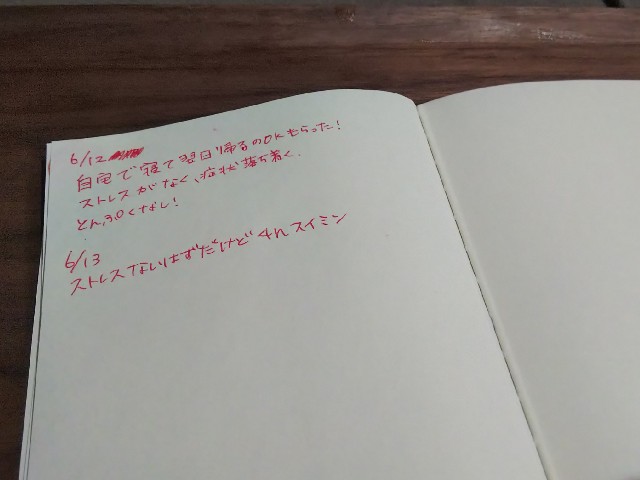 6/12
自宅で寝て翌日帰るのOKもらった!
ストレスがなく、症状落ち着く.
とんぷくなし!
6/13
ストレスないはずだけど 4h スイミン